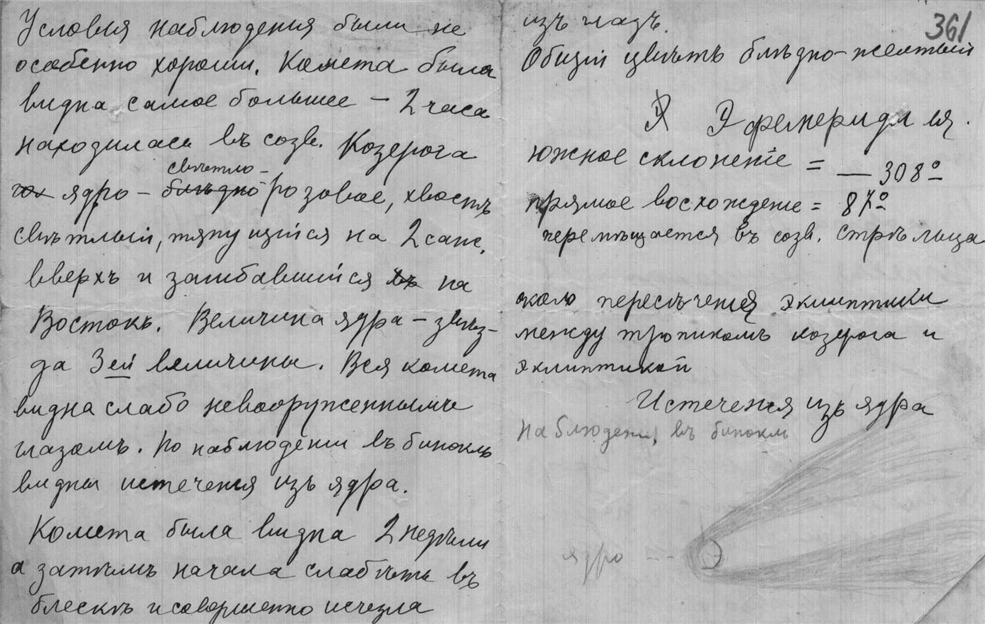 Условія наблюденія были не
особенно хороши. Комета была
видна самое большее – 2 часа
находилась въ созв. Козерога
ядро – свѣтло-
блѣдно розовое, хвостъ
свѣтлый, тянущійся на 2 саж.
вверхъ и загибавшійся на
Востокъ. Величина ядра – звѣз-
да 3ей величины. Вся комета
видна слабо невооруженнымъ
глазомъ. По наблюденіи въ бинокль
видны истеченія изъ ядра.
Комета была видна 2 недѣли
а затѣмъ начала слабѣть въ
блескѣ и совершенно исчезла
изъ глазъ.
361
Общій цвѣтъ блѣдно-желтый
Эфемериды ея.
южное склоненіе = — 308°
прямое восхожденіе = 87°
перемѣщается въ созв. Стрѣльца
около пересѣченія эклиптики
между тропикомъ козерога и
эклиптикой
Истеченія изъ ядра
Наблюденія въ бинокль
ядро